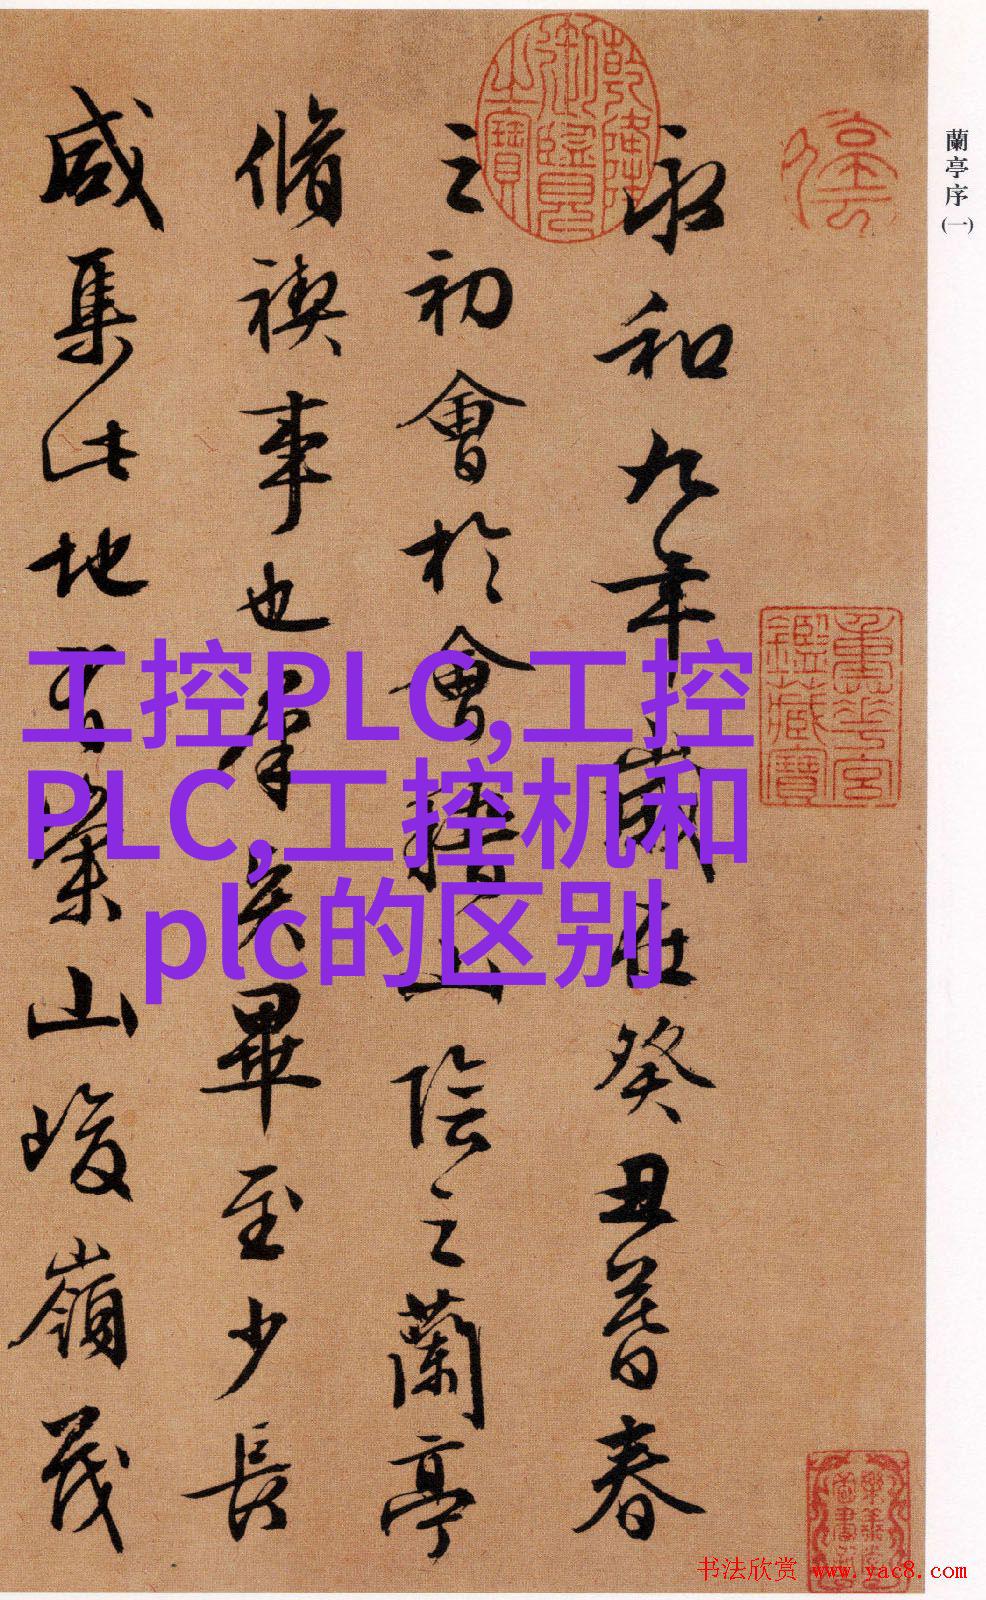 蘭亭序(一)
永和九年歲在癸丑暮春
之初會於會稽山陰之蘭亭
脩禊事也羣賢畢至少長
咸集此地有崇山峻嶺茂
乾隆御覽之寶
重華宮鑑藏寶
樂善堂圖書記
工控PLC,工控
PLC,工控机和
plc的区别
书法欣赏 www.yac8.com